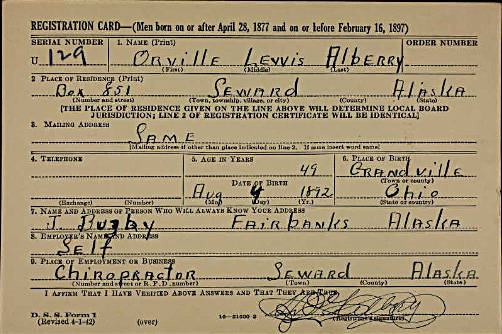 REGISTRATION CARD—(Men born on or after April 28, 1877 and on or before February 16, 1897)
SERIAL NUMBER 1. NAME (Print) ORDER NUMBER
U 129 ORVILLE LEWIS ALBERRY
(First) (Middle) (Last)
2. PLACE OF RESIDENCE (Print)
Box 851 SEWARD ALASKA
(Number and street) (Town, township, village, or city) (County) (State)
[THE PLACE OF RESIDENCE GIVEN ON THE LINE ABOVE WILL DETERMINE LOCAL BOARD
JURISDICTION; LINE 2 OF REGISTRATION CERTIFICATE WILL BE IDENTICAL]
3. MAILING ADDRESS
SAME
[Mailing address if other than place indicated on line 2. If same insert word same]
4. TELEPHONE 5. AGE IN YEARS 6. PLACE OF BIRTH
49 GRANDVILLE
DATE OF BIRTH (Town or county)
Aug 9 1892 OHIO
(Exchange) (Number) (Mo.) (Day) (Yr.) (State or country)
7. NAME AND ADDRESS OF PERSON WHO WILL ALWAYS KNOW YOUR ADDRESS
J. BUZBY FAIRBANKS ALASKA
8. EMPLOYER'S NAME AND ADDRESS
SELF
9. PLACE OF EMPLOYMENT OR BUSINESS
CHIROPRACTOR SEWARD ALASKA
(Number and street or R. F. D. number) (Town) (County) (State)
I AFFIRM THAT I HAVE VERIFIED ABOVE ANSWERS AND THAT THEY ARE TRUE.
D. S. S. Form 1
(Revised 4-1-42) (over) 16—21630-2 (Registrant's signature)